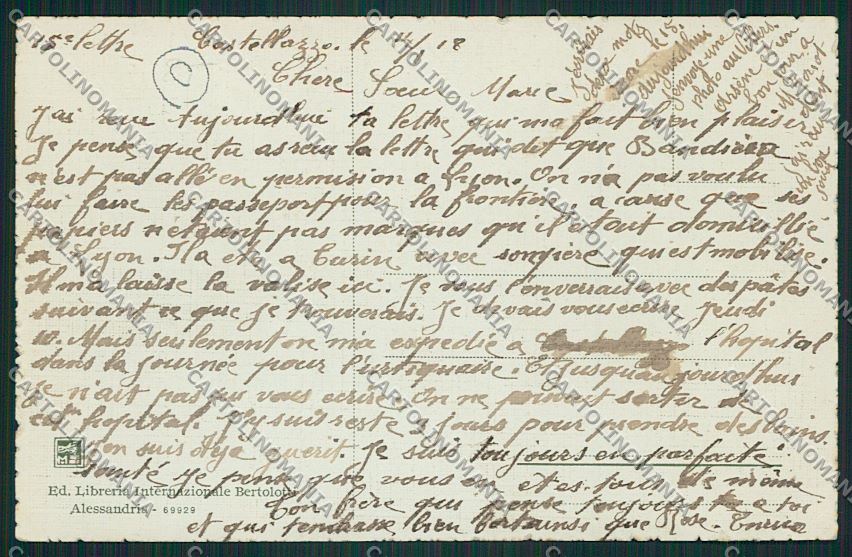 15e lettre Castellazzo. le 14/ 18
Chere Sœur Marie
J'ai reçu aujourd'hui ta lettre, qui m'a fait bien plaisir
Je pense que tu as reçu la lettre qui dit que Bandiera
n'est pas allé en permision a Lyon. On n'a pas voulu
lui faire les passeport pour la frontière, a cause que ses
papiers n'étaient pas marques qu'il etait domicillié
a Lyon. Il a eté a Turin avec son père qui est mobilisé.
Il m'a laisse la valise ici. Je vous l'enverrais avec des pâtes
suivant ce que je trouverais. Je devais vous ecrire Jeudi
10. Mais seulement on m'a expedié a l'hopital
dans la journée pour l'urtiquaire. Et jusqu'aujourd'hui
je n'ait pas pu vous ecrire. On ne pouvait sortir de
cet hopital. J'y suis resté 4 jours pour prendre des bains.
J'en suis déja guerit. Je suis toujours en parfaite
santé je pense que vous en etes tous de même
Ton frère qui pense toujours a toi
et qui t'embrasse bien fort ainsi que Rose. Enrico
J'ecrirais
aujourd'hui
J'envoie une
photo au
Ed. Libreria Internazionale Bertolotti
Alessandria - 69929
CARTOLINOMANIA